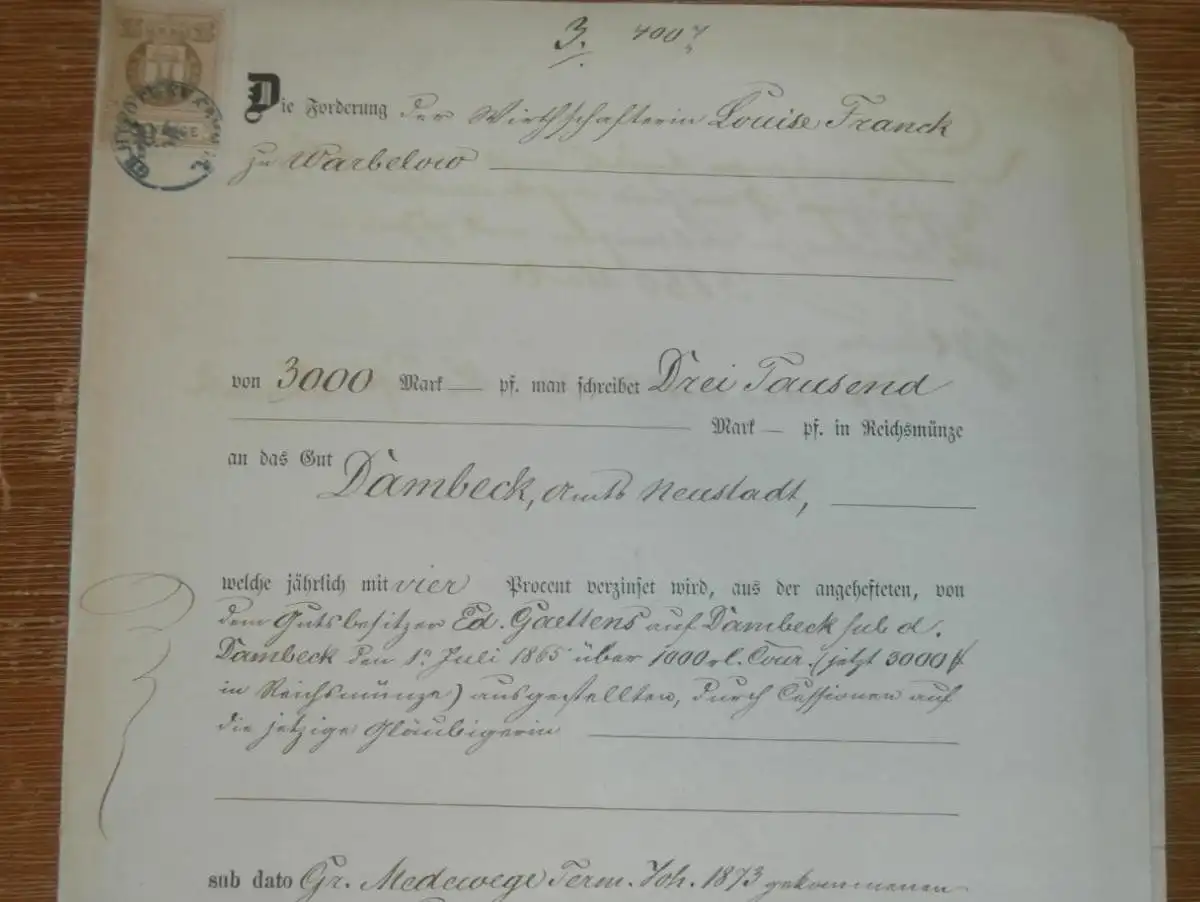 3.
Die Forderung der Wirthschafterin Louise Franck
zu Warbelow
von 3000 Mark — pf. man schreibet Drei Tausend
Mark — pf. in Reichsmünze
an das Gut Dambeck, Amts Neustadt,
welche jährlich mit vier Procent verzinset wird, aus der angehefteten, von
dem Gutsbesitzer Ed. Gaettens auf Dambeck sub d.
Dambeck den 1. Juli 1865 über 1000 rl. Cour. (jetzt 3000
in Reichsmünze) ausgestellten, durch Cessionen auf
die jetzige Gläubigerin
sub dato Gr. Medewege Term. Joh. 1873 gekommenen